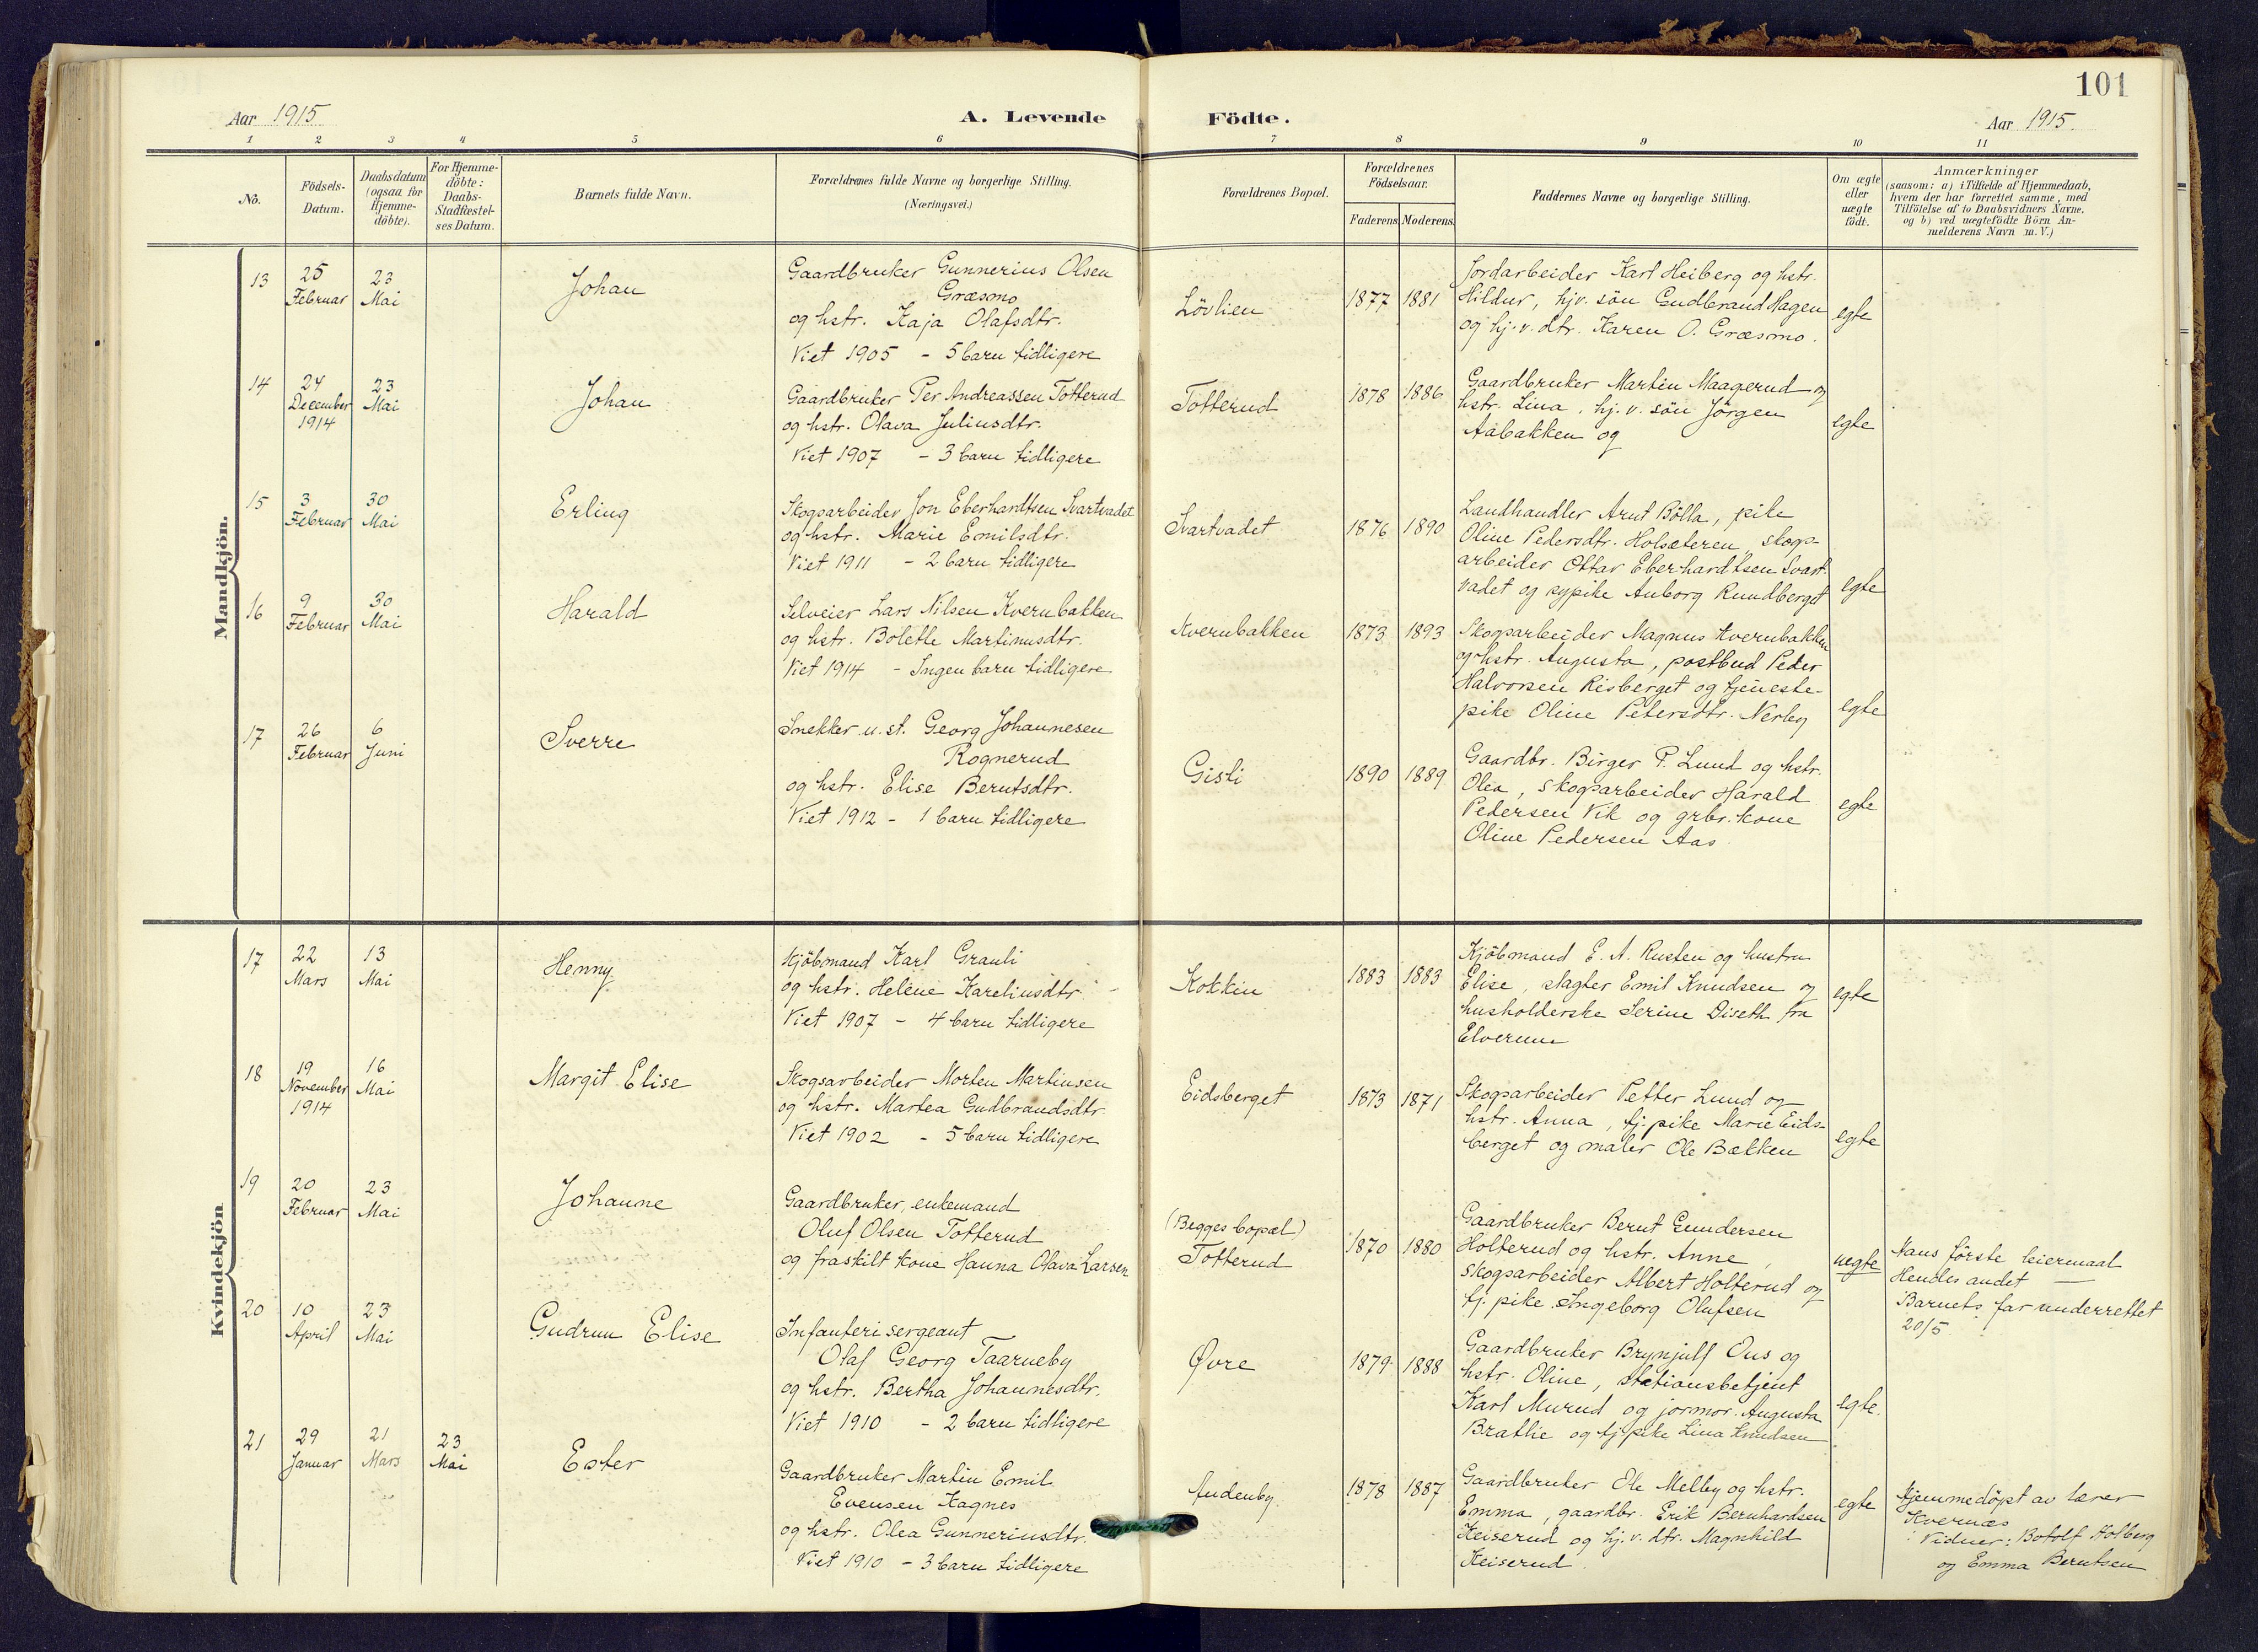 101
Aar 1915
A. Levende Födte.
Aar 1915.
1 2 3 4 5 6 7 8 9 10 11
No.
Födsels-
Datum.
Daabsdatum
(ogsaa for
Hjemme-
döbte).
For Hjemme-
döbte:
Daabs-
Stadfæstel-
ses Datum.
Barnets fulde Navn.
Forældrenes fulde Navne og borgerlige Stilling.
(Næringsvei.)
Forældrenes Bopæl.
Forældrenes
Födselsaar.
Faderens Moderens.
Faddernes Navne og borgerlige Stilling.
Om ægte
eller
uægte
födt.
Anmærkninger
(saasom: a) i Tilfælde af Hjemmedaab,
hvem der har forrettet samme, med
Tilföielse af to Daabsvidners Navne,
og b) ved uægtefödte Börn An-
melderens Navn m. V.)
Mandkjön.
13
25
Februar
23
Mai
Johan
Gaardbruker Gunnerius Olsen
Græsmo
og hstr. Kaja Olafsdtr.
Viet 1905 - 5 barn tidligere
Lövlien
1877 1881
Jordarbeider Karl Heiberg og hstr.
Hildur, hjv. sön Gudbrand Hagen
og hj.v. dtr. Karen O. Græsmo.
egte
14
24
December
1914
23
Mai
Johan
Gaardbruker Per Andreassen Totterud
og hstr. Olava Juliusdtr.
Viet 1907 - 3 barn tidligere
Totterud
1878 1886
Gaardbruker Martin Maagerud og
hstr. Lina, hj.v. sön Jörgen
Aabakken og
egte
15
3
Februar
30
Mai
Erling
Skogsarbeider Jon Eberhardtsen Svartvadet
og hstr. Marie Emilsdtr.
Viet 1911 - 2 barn tidligere
Svartvadet
1876 1890
Landhandler Arnt Bölla, pike
Oline Pedersdtr. Holsæteren, skogs-
arbeider Ottar Eberhardtsen Svart-
vadet og sypike Anborg Rundberget
egte
16
9
Februar
30
Mai
Harald
Selveier Lars Nilsen Kvernbakken
og hstr. Bolette Martinusdtr.
Viet 1914 - Ingen barn tidligere
Kvernbakken
1873 1893
Skogsarbeider Magnus Kvernbakken
og hstr. Augusta, postbud Peder
Halvorsen Risberget og tjeneste-
pike Oline Petersdtr. Nerby
egte
17
26
Februar
6
Juni
Sverre
Snekker u.st. Georg Johannesen
Rognerud
og hstr. Elise Berntsdtr.
Viet 1912 - 1 barn tidligere
Gisli
1890 1889
Gaardbr. Birger P. Lund og hstr.
Olea, skogsarbeider Harald
Pedersen Vik og grbr. kone
Oline Pedersen Aas
egte
Kvindekjön
17
22
Mars
13
Mai
Henny
Kjöbmand Karl Granli
og hstr. Helene Kareliusdtr.
Viet 1907 - 4 barn tidligere
Kokkin
1883 1883
Kjöbmand E. A. Rusten og hustru
Elise, slagter Emil Knudsen og
husholderske Serine Diseth fra
Elverum
egte
18
19
November
1914
16
Mai
Margit Elise
Skogsarbeider Morten Martinsen
og hstr. Martea Gudbrandsdtr.
Viet 1902 - 5 barn tidligere
Eidsberget
1873 1871
Skogsarbeider Petter Lund og
hstr. Anna, tj. pike Marie Eids-
berget og maler Ole Bækken
egte
19
20
Februar
23
Mai
Johanne
Gaardbruker, enkemand
Oluf Olsen Totterud
og fraskilt kone Hanna Olava Larsen
(Begges bopæl)
Totterud
1870 1880
Gaardbruker Bernt Gundersen
Holterud og hstr. Anne,
skogsarbeider Albert Holterud og
tj. pike Ingeborg Olafsen
uegte
Hans förste leiermaal
Hendes andet —
Barnets far underrettet
20/5
20
10
April
23
Mai
Gudrun Elise
Infanterisergeant
Olaf Georg Taarneby
og hstr. Bertha Johannesdtr.
Viet 1910 - 2 barn tidligere
Øvre
1879 1888
Gaardbruker Brynjulf Ous og
hstr. Oline, stationsbetjent
Karl Murud og jormor Augusta
Bratlie og tj pike Lina Knudsen
egte.
21
29
Januar
21
Mars
23
Mai
Ester
Gaardbruker Martin Emil
Evensen Kagnes
og hstr. Olea Gunneriusdtr.
Viet 1910 - 3 barn tidligere
Audenby
1878 1887
Gaardbruker Ole Melby og hstr.
Emma, gaardbr. Erik Bernhardsen
Keiserud og hj.v. dtr. Magnhild
Keiserud
egte
Hjemmedøpt av lærer
Kvernæs
Vidner: Botolf Holberg
og Emma Berntsen